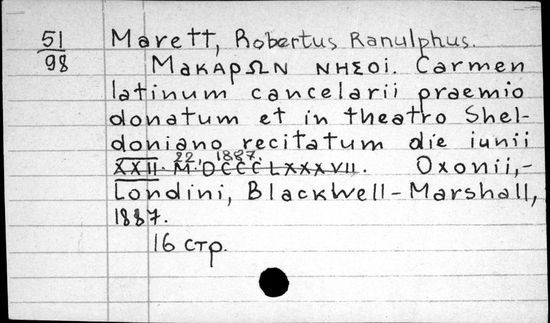 51
98
Marett, Robertus Ranulphus.
ΜακαρΩΝ ΝΗΣΟΙ. Carmen
latinum cancelarii praemio
donatum et in theatro Shel-
doniano recitatum die iunii
22. 1887.
XXII. M.DCCCLXXXVII. Oxonii,-
Londini, Blackwell-Marshall,
1887.
16 стр.